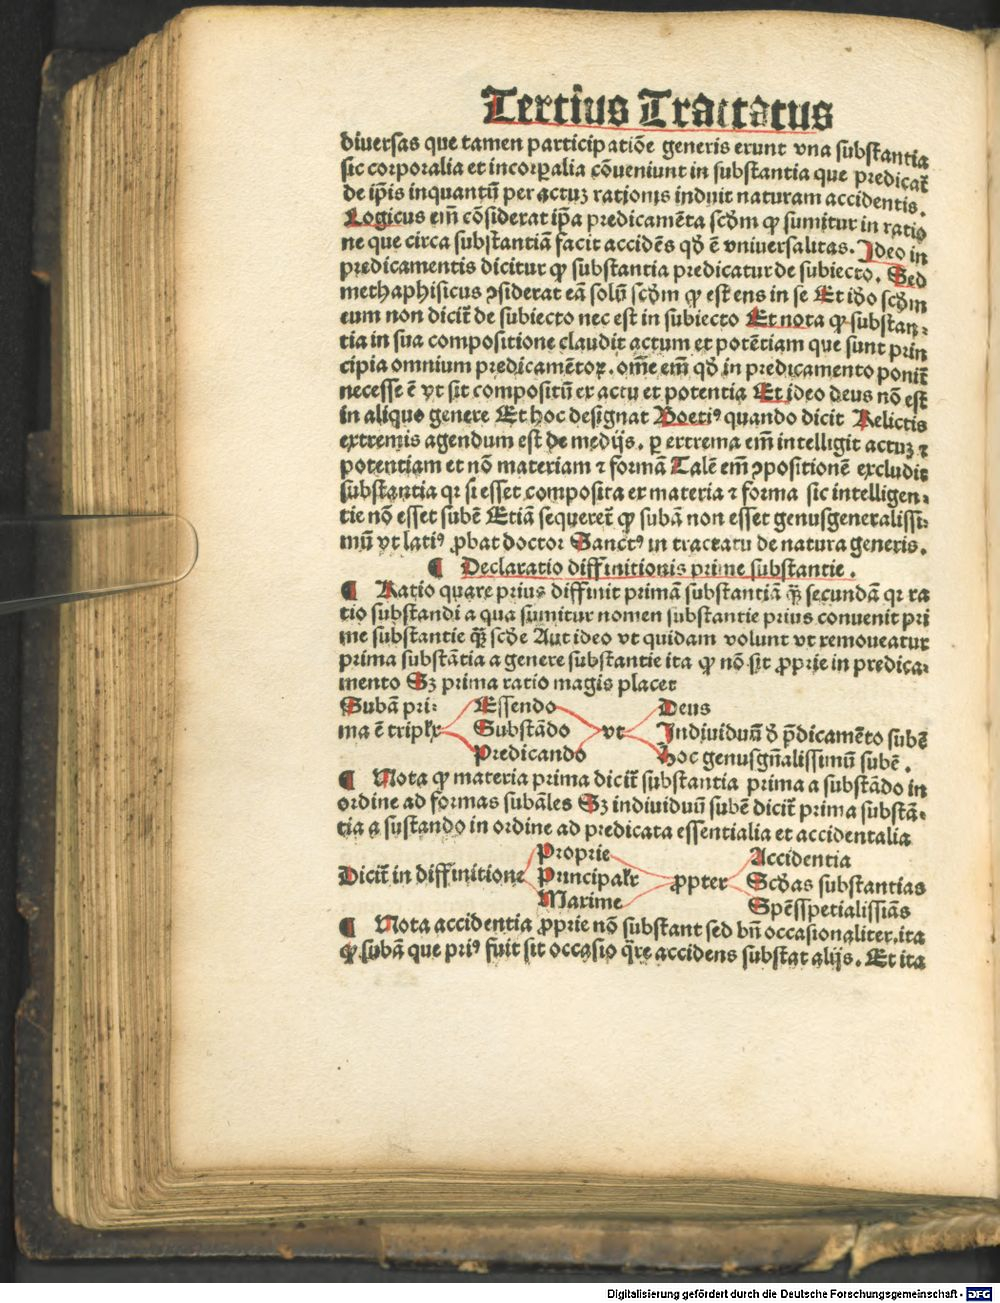 Tertius Tractatus
diuersas que tamen participatiōe generis erunt vna substantia
sic corporalia et incorꝑalia cōueniunt in substantia que predicat̄
de ip̄is inquantū per actuꝫ rationis induit naturam accidentis.
Logicus em̄ cōsiderat ip̄a predicamēta scd̄m ꝙ sumitur in ratio
ne que circa substantiā facit accidēs qd̄ ē vniuersalitas. Ideo in
predicamentis dicitur ꝙ substantia predicatur de subiecto. Sed
methaphisicus ꝯsiderat eā solū scd̄m ꝙ est ens in se Et id̄o scd̄m
eum non dicit̄ de subiecto nec est in subiecto Et nota ꝙ substan⸗
tia in sua compositione claudit actum et potētiam que sunt prin
cipia omnium predicamētoꝝ. om̄e em̄ qd̄ in predicamento ponit̄
necesse ē vt sit compositū ex actu et potentia Et ideo deus nō est
in aliquo genere Et hoc designat Boetiꝰ quando dicit Relictis
extremis agendum est de medijs. ꝑ extrema em̄ intelligit actuꝫ ⁊
potentiam et nō materiam ⁊ formā Talē em̄ ꝯpositionē excludit
substantia qꝛ si esset composita ex materia ⁊ forma sic intelligen⸗
tie nō esset subē Etiā sequeret̄ ꝙ subā non esset genusgeneralissi⸗
mū vt latiꝰ ꝓbat doctor Sanctꝰ in tractatu de natura generis.
¶ Declaratio diffinitionis prime substantie.
¶ Ratio quare prius diffinit primā substantiā q̄ꝫ secundā qꝛ ra
tio substandi a qua sumitur nomen substantie prius conuenit pri
me substantie q̄ꝫ scd̄e Aut ideo vt quidam volunt vt remoueatur
prima substātia a genere substantie ita ꝙ nō sit ꝓprie in predica⸗
mento Sꝫ prima ratio magis placet
Subā pri⸗ Essendo Deus
ma ē triplꝛ Substādo vt Indiuiduū d̄ p̄dicamēto subē
Predicando Hoc genusgn̄alissimū subē.
¶ Nota ꝙ materia prima dicit̄ substantia prima a substādo in
ordine ad formas subāles Sꝫ indiuiduū subē dicit̄ prima substā⸗
tia a sustando in ordine ad predicata essentialia et accidentalia
Proprie Accidentia
Dicit̄ in diffinitione Principalꝛ ꝓpter Scd̄as substantias
Maxime Spēsspetialissiās
¶ Nota accidentia ꝓprie nō substant sed bn̄ occasionaliter.ita
ꝙ subā que priꝰ fuit sit occasio q̄re accidens substat alijs. Et ita
Digitalisierung gefördert durch die Deutsche Forschungsgemeinschaft - DFG